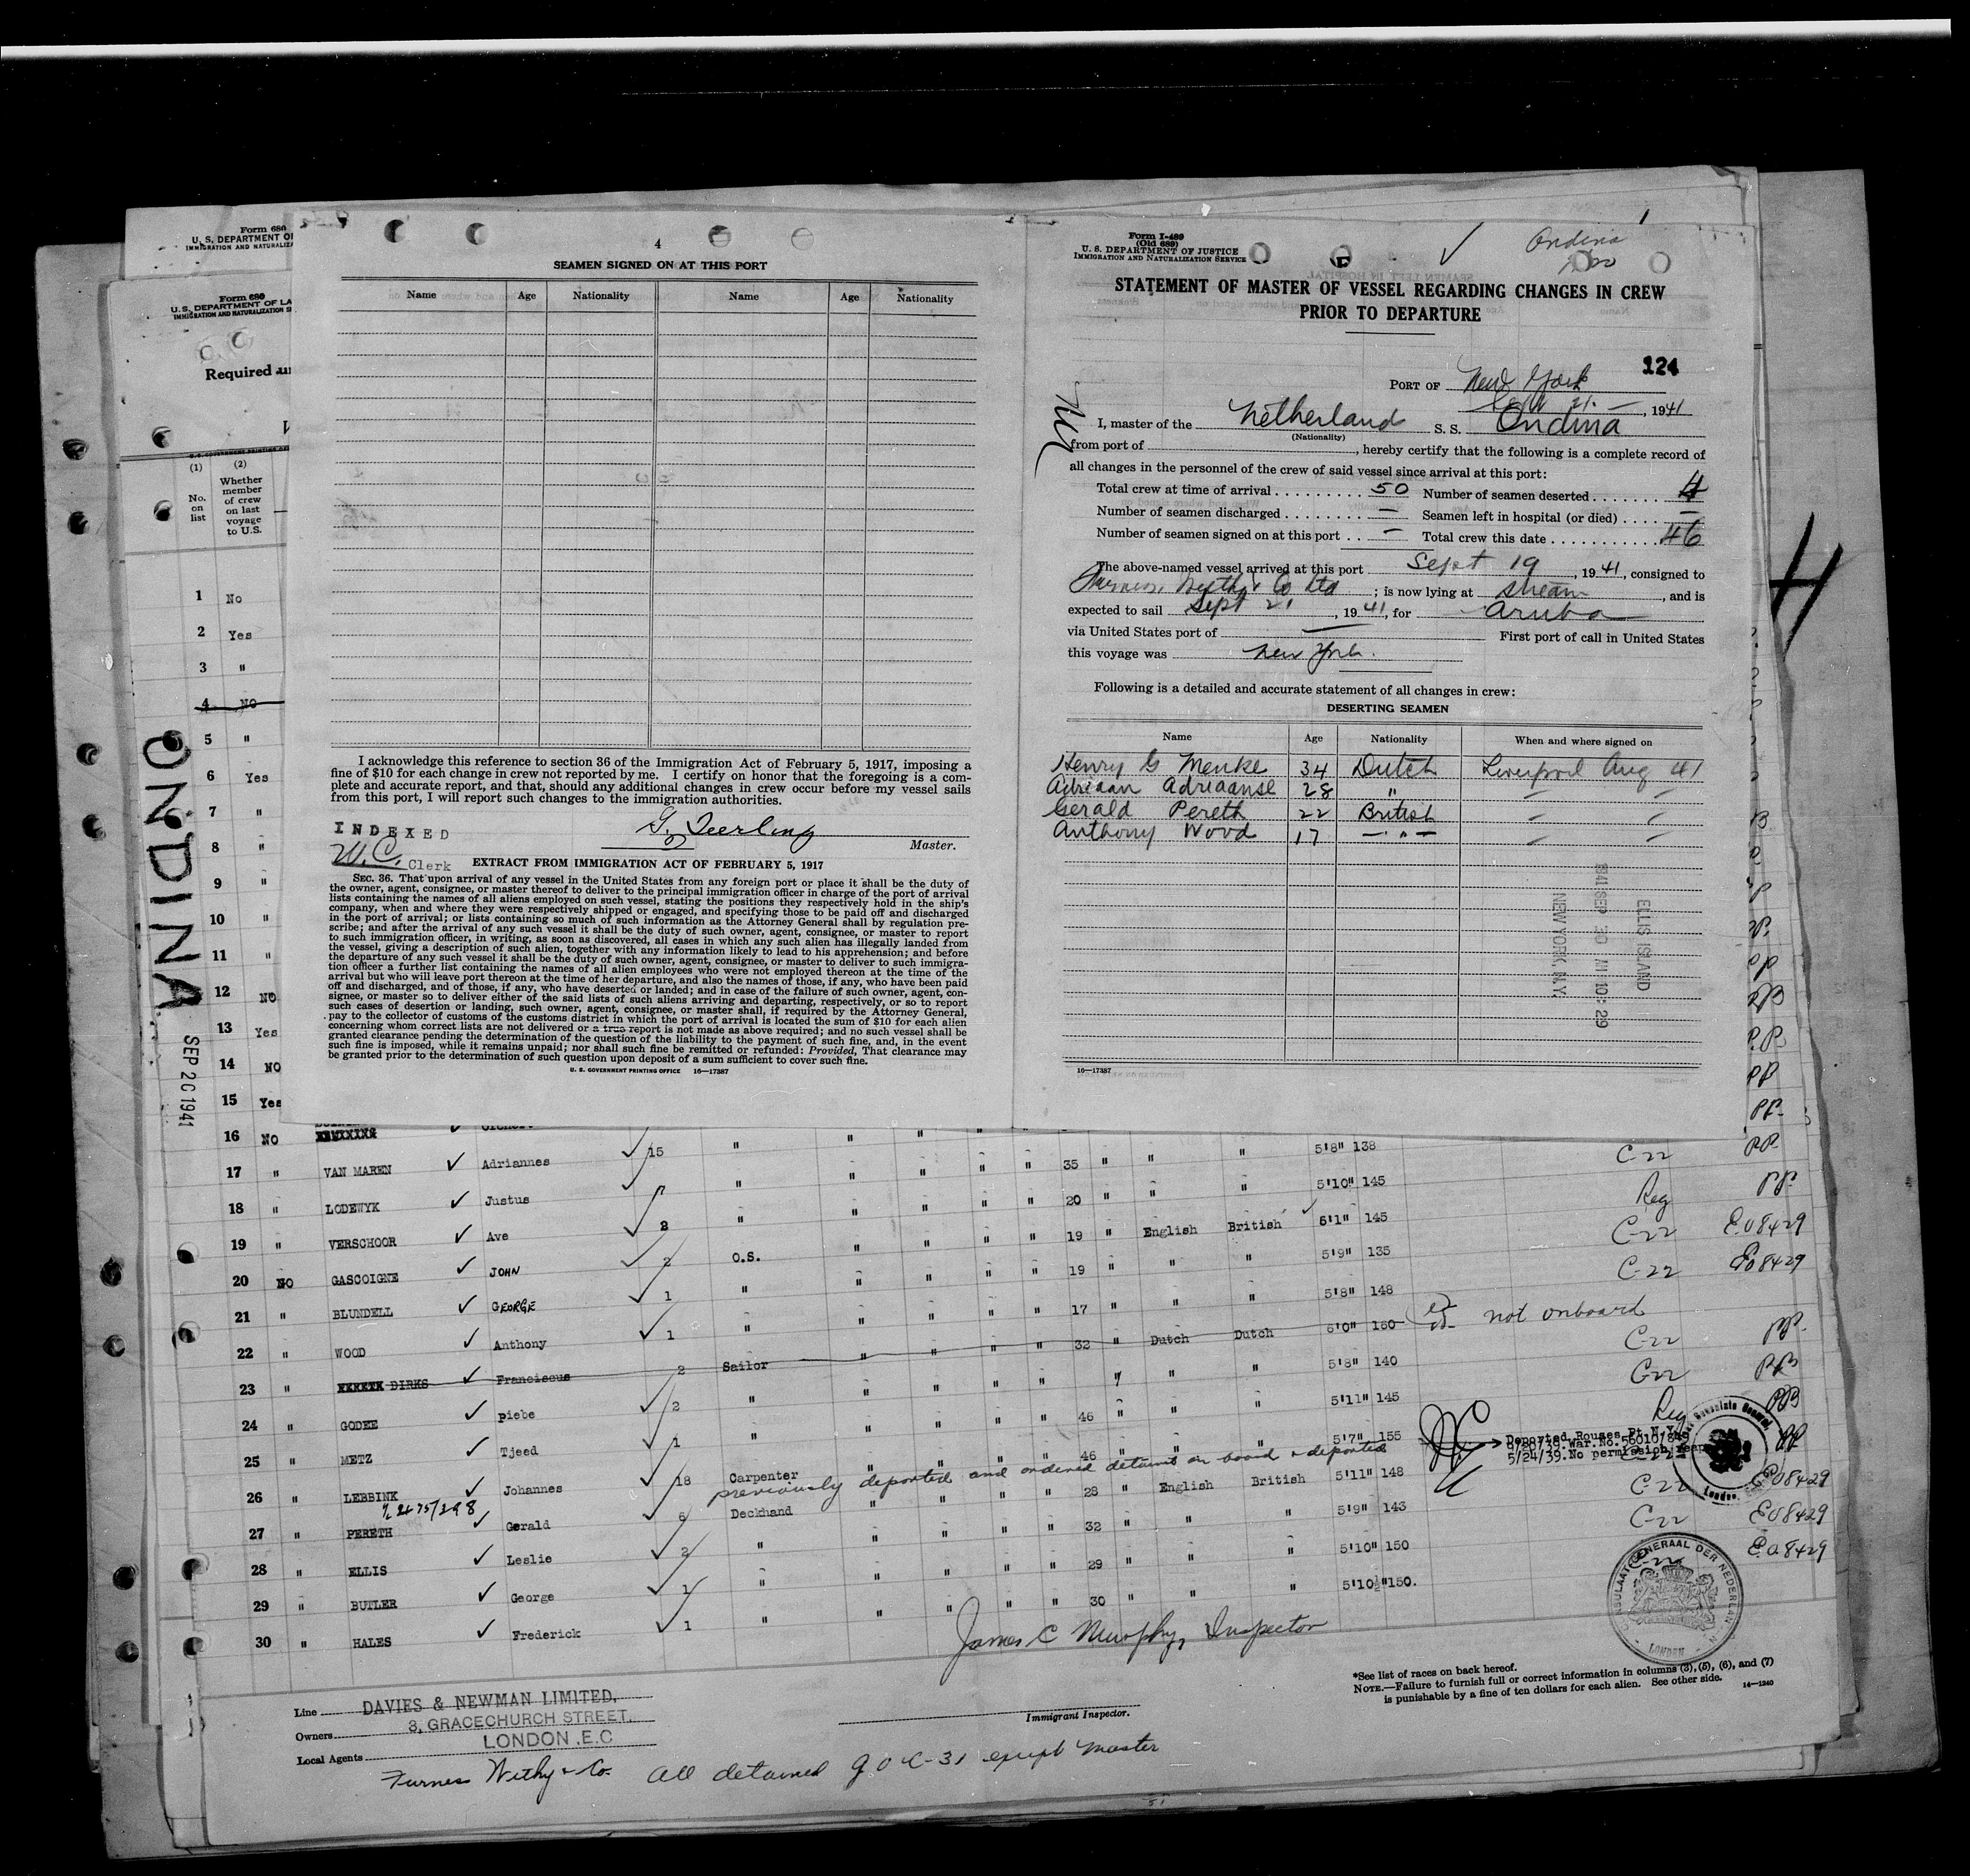 Form 680
U. S. DEPARTMENT OF
IMMIGRATION AND NATURALIZA
Form 680
U. S. DEPARTMENT OF LA
IMMIGRATION AND NATURALIZATION S
Required un
(1) (2)
No. on list
Whether member of crew on last voyage to U.S.
1 No
2 Yes
3 "
4 NO
5 "
6 Yes
7 "
8 "
9 "
10 "
11 "
12 NO
13 Yes
14 NO
15 Yes
ONDINA
SEP 20 1941
4
SEAMEN SIGNED ON AT THIS PORT
Name Age Nationality Name Age Nationality
I acknowledge this reference to section 36 of the Immigration Act of February 5, 1917, imposing a
fine of $10 for each change in crew not reported by me. I certify on honor that the foregoing is a com-
plete and accurate report, and that, should any additional changes in crew occur before my vessel sails
from this port, I will report such changes to the immigration authorities.
INDEXED
W.C. Clerk
Master.
EXTRACT FROM IMMIGRATION ACT OF FEBRUARY 5, 1917
SEC. 36. That upon arrival of any vessel in the United States from any foreign port or place it shall be the duty of
the owner, agent, consignee, or master thereof to deliver to the principal immigration officer in charge of the port of arrival
lists containing the names of all aliens employed on such vessel, stating the positions they respectively hold in the ship's
company, when and where they were respectively shipped or engaged, and specifying those to be paid off and discharged
in the port of arrival; or lists containing so much of such information as the Attorney General shall by regulation pre-
scribe; and after the arrival of any such vessel it shall be the duty of such owner, agent, consignee, or master to report
to such immigration officer, in writing, as soon as discovered, all cases in which any such alien has illegally landed from
the vessel, giving a description of such alien, together with any information likely to lead to his apprehension; and before
the departure of any such vessel it shall be the duty of such owner, agent, consignee, or master to deliver to such immigra-
tion officer a further list containing the names of all alien employees who were not employed thereon at the time of the
arrival but who will leave port thereon at the time of her departure, and also the names of those, if any, who have been paid
off and discharged, and of those, if any, who have deserted or landed; and in case of the failure of such owner, agent, con-
signee, or master so to deliver either of the said lists of such aliens arriving and departing, respectively, or so to report
such cases of desertion or landing, such owner, agent, consignee, or master shall, if required by the Attorney General,
pay to the collector of customs of the customs district in which the port of arrival is located the sum of $10 for each alien
concerning whom correct lists are not delivered or a true report is not made as above required; and no such vessel shall be
granted clearance pending the determination of the question of the liability to the payment of such fine, and, in the event
such fine is imposed, while it remains unpaid; nor shall such fine be remitted or refunded: Provided, That clearance may
be granted prior to the determination of such question upon deposit of a sum sufficient to cover such fine.
U. S. GOVERNMENT PRINTING OFFICE 16—17387
Form I-489
(Old 689)
U. S. DEPARTMENT OF JUSTICE
IMMIGRATION AND NATURALIZATION SERVICE
Ondina
STATEMENT OF MASTER OF VESSEL REGARDING CHANGES IN CREW
PRIOR TO DEPARTURE
124
PORT OF New York
Sept 21. —, 1941
I, master of the Netherland S. S. Ondina
(Nationality)
from port of , hereby certify that the following is a complete record of
all changes in the personnel of the crew of said vessel since arrival at this port:
Total crew at time of arrival . . . . . . . . . 50 Number of seamen deserted . . . . . . . 4
Number of seamen discharged . . . . . . . . — Seamen left in hospital (or died) . . . . —
Number of seamen signed on at this port . . — Total crew this date . . . . . . . . . . . 46
The above-named vessel arrived at this port Sept 19, 1941, consigned to
Furness Withy & Co Ltd ; is now lying at stream, and is
expected to sail Sept 21, 1941, for Aruba
via United States port of — First port of call in United States
this voyage was New York.
Following is a detailed and accurate statement of all changes in crew:
DESERTING SEAMEN
Name Age Nationality When and where signed on
Henry G Menke 34 Dutch Liverpool Aug 41
Adriaan Adriaanse 28 " " "
Gerald Pereth 22 British " "
Anthony Wood 17 — " — " "
ELLIS ISLAND
1941 SEP 30 AM 10:29
NEW YORK, N.Y.
16—17387
16 No
17 " VAN MAREN Adriannes 15 " 35 5'8" 138 C-22 PP.
18 " LODEWYK Justus " 20 5'10" 145 Reg PP.
19 " VERSCHOOR Ave 2 " 19 " English British 5'1" 145 C-22 E08429
20 NO GASCOIGNE JOHN 2 O.S. 19 " " " 5'9" 135 C-22 E08429
21 " BLUNDELL GEORGE 1 " 17 " " " 5'8" 148
22 " WOOD Anthony 1 " 32 " Dutch Dutch 6'0" 160 not onboard
23 " DIRKS Franciscus 2 Sailor " " 5'8" 140 C-22
24 " GODEE piebe 2 " 46 " " " 5'11" 145 Reg
25 " METZ Tjeed 1 " 46 " " " 5'7" 155
26 " LEBBINK Johannes 18 Carpenter 28 " English British 5'11" 148 C-22 E08429
previously deported and ordered detained on board & deported
Deported Rouses Pt N.Y.
5/24/39. No permission reap
27 " PERETH Gerald 6 Deckhand 32 " " " 5'9" 143 C-22 E08429
28 " ELLIS Leslie 2 " 29 " " 5'10" 150 C-22 E.0.8429
29 " BUTLER George 1 " 30 " " " 5'10½" 150.
30 " HALES Frederick 1 "
James C Murphy, Inspector
CONSULAAT GENERAAL DER NEDERLANDEN
LONDON
Line DAVIES & NEWMAN LIMITED.
Owners 8, GRACECHURCH STREET,
LONDON .E.C
Local Agents Furness Withy & Co. All detained
except Master
Immigrant Inspector.
*See list of races on back hereof.
NOTE.—Failure to furnish full or correct information in columns (3), (5), (6), and (7)
is punishable by a fine of ten dollars for each alien. See other side.
14—1240